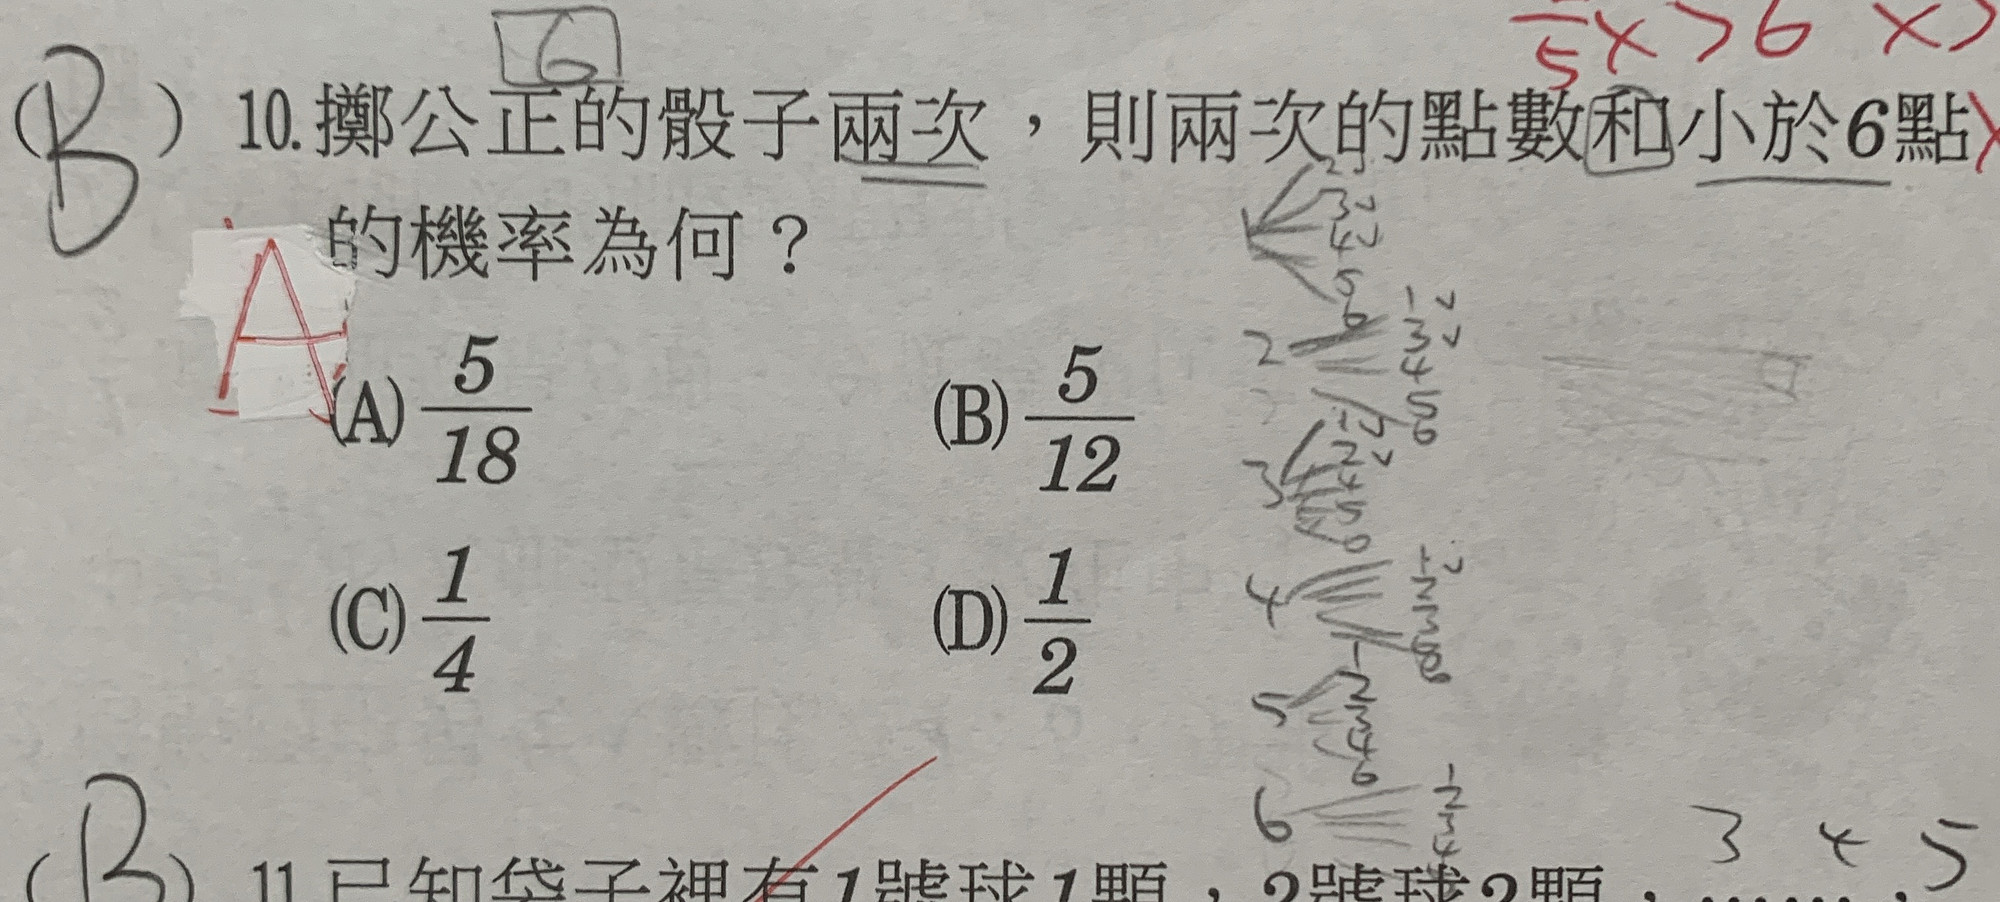 6
5x>6 x>
(B) 10.擲公正的骰子兩次，則兩次的點數和小於6點
的機率為何？
A
(A) 5/18 (B) 5/12
(C) 1/4 (D) 1/2
2 3 4 5 6
2 1 3 4 5 6
3 1 2 4 5 6
4 1 2 3 5 6
5 1 2 3 4 6
6 1 2 3 4
3 4 5
(B) 11.已知袋子裡有1號球1顆，2號球2顆，……，